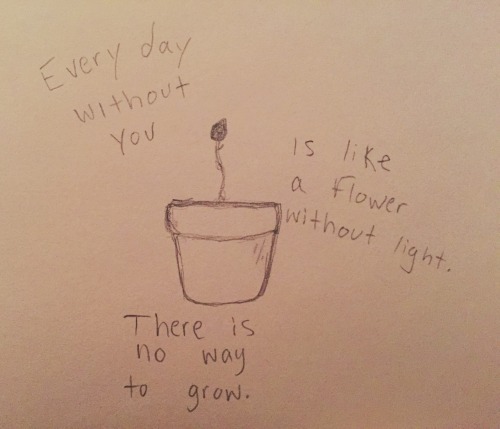 Every day
without
You
is like
a flower
without light.
There is
no way
to grow.